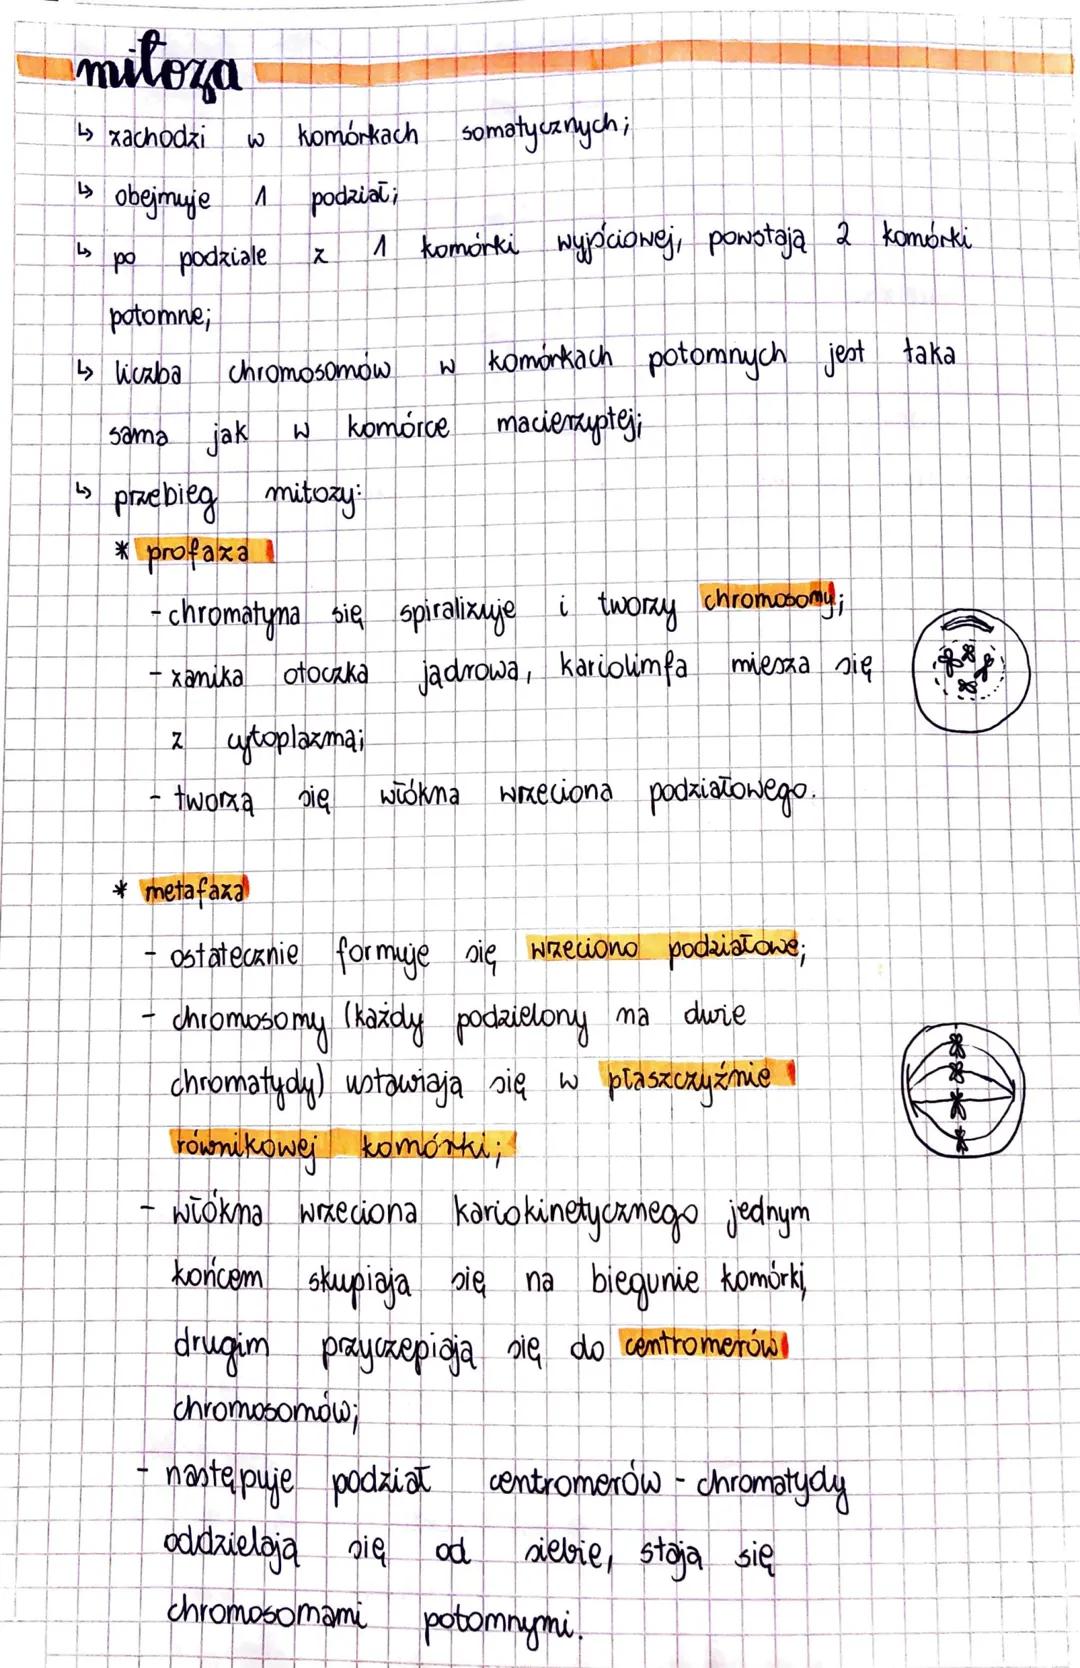 mitoza
↳ zachodzi w komórkach somatycznych;
↳ obejmuje 1 podział;
↳ po podziale z 1 komórki wyjściowej, powstają 2 komórki
potomne;
↳ liczba chromosomów w komórkach potomnych jest taka
sama jak w komórce macierzystej;
↳ przebieg mitozy:
* profaza
- chromatyna się spiralizuje i tworzy chromosomy;
- zanika otoczka jądrowa, kariolimfa miesza się
z cytoplazmą;
- tworzą się włókna wrzeciona podziałowego.
* metafaza
- ostatecznie formuje się wrzeciono podziałowe;
- chromosomy (każdy podzielony na dwie
chromatydy) ustawiają się w płaszczyźnie
równikowej komórki;
- włókna wrzeciona kariokinetycznego jednym
końcem skupiają się na biegunie komórki,
drugim przyczepiają się do centromerów
chromosomów;
- następuje podział centromerów - chromatydy
oddzielają się od siebie, stają się
chromosomami potomnymi.